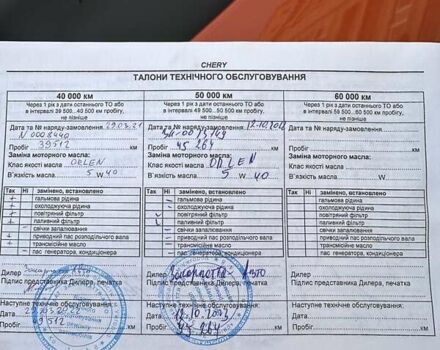 CHERY
ТАЛОНИ ТЕХНІЧНОГО ОБСЛУГОВУВАННЯ
40 000 км
Через 1 рік з дати останнього ТО або
в інтервалі 39 500...40 500 км пробігу,
не пізніше
Дата та № наряду-замовлення
N 0008440
Пробіг 39512 км
Заміна моторного масла:
Клас якості масла ORLEN
В'язкість масла 5 W 40
Так Ні замінено, встановлено
гальмова рідина
охолоджуюча рідина
повітряний фільтр
паливний фільтр
свічки запалювання
приводний пас розподільчого вала
трансмісійне масло
пас генератора, кондиціонера
Дилер
Підпис представника Дилера, печатка
Наступне технічне обслуговування:
Дата
Пробіг 39512
50 000 км
Через 1 рік з дати останнього ТО або
в інтервалі 49 500...50 500 км пробігу,
не пізніше
Дата та № наряду-замовлення
Пробіг 45 264
Заміна моторного масла:
Клас якості масла ORLEN
В'язкість масла 5 W 40
Так Ні замінено, встановлено
гальмова рідина
охолоджуюча рідина
повітряний фільтр
паливний фільтр
свічки запалювання
приводний пас розподільчого вала
трансмісійне масло
пас генератора, кондиціонера
Дилер
Підпис представника Дилера, печатка
Наступне технічне обслуговування:
Дата
Пробіг 45 264
60 000 км
Через 1 рік з дати останнього ТО або
в інтервалі 59 500...60 500 км пробігу,
не пізніше
Дата та № наряду-замовлення
Пробіг
Заміна моторного масла:
Клас якості масла
В'язкість масла
Так Ні замінено, встановлено
гальмова рідина
охолоджуюча рідина
повітряний фільтр
паливний фільтр
свічки запалювання
приводний пас розподільчого вала
трансмісійне масло
пас генератора, кондиціонера
Дилер
Підпис представника Дилера, печатка
Наступне технічне обслуговування:
Дата
Пробіг